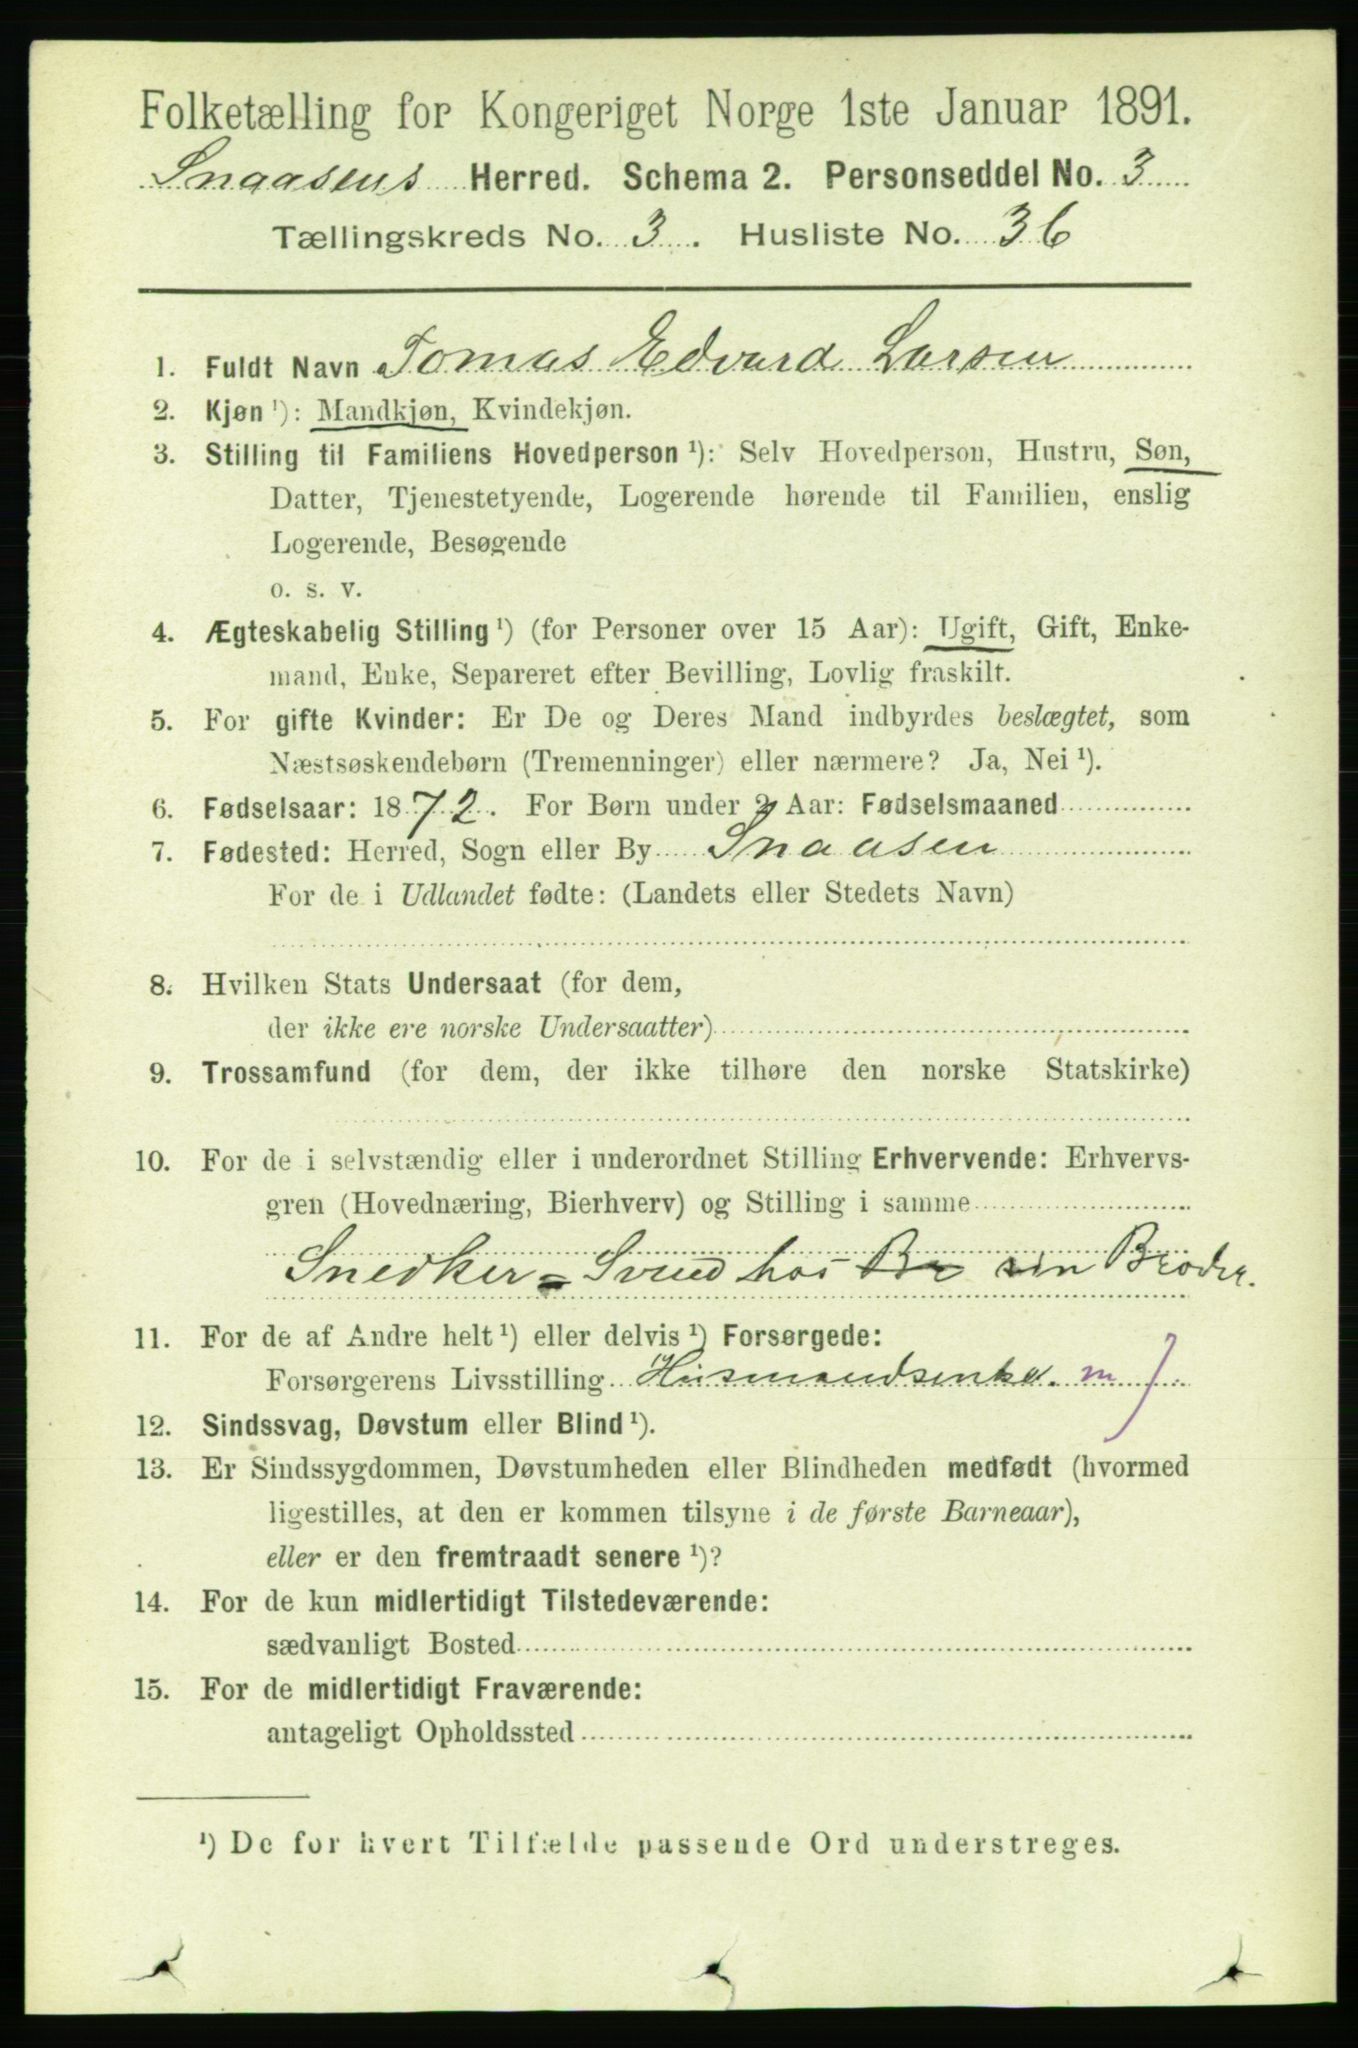 Folketælling for Kongeriget Norge 1ste Januar 1891.
Snaasens Herred. Schema 2. Personseddel No. 3
Tællingskreds No. 3. Husliste No. 36
1. Fuldt Navn Tomas Edvard Larsen
2. Kjøn ¹): Mandkjøn, Kvindekjøn.
3. Stilling til Familiens Hovedperson ¹): Selv Hovedperson, Hustru, Søn,
Datter, Tjenestetyende, Logerende hørende til Familien, enslig
Logerende, Besøgende
o. s. v.
4. Ægteskabelig Stilling ¹) (for Personer over 15 Aar): Ugift, Gift, Enke-
mand, Enke, Separeret efter Bevilling, Lovlig fraskilt.
5. For gifte Kvinder: Er De og Deres Mand indbyrdes beslægtet, som
Næstsøskendebørn (Tremenninger) eller nærmere? Ja, Nei ¹).
6. Fødselsaar: 1872. For Børn under 2 Aar: Fødselsmaaned
7. Fødested: Herred, Sogn eller By Snaasen
For de i Udlandet fødte: (Landets eller Stedets Navn)
8. Hvilken Stats Undersaat (for dem,
der ikke ere norske Undersaatter)
9. Trossamfund (for dem, der ikke tilhøre den norske Statskirke)
10. For de i selvstændig eller i underordnet Stilling Erhvervende: Erhvervs-
gren (Hovednæring, Bierhverv) og Stilling i samme
Snedker = Svend hos Br sin Broder.
11. For de af Andre helt ¹) eller delvis ¹) Forsørgede:
Forsørgerens Livsstilling Husmandsenke. m
12. Sindssvag, Døvstum eller Blind ¹).
13. Er Sindssygdommen, Døvstumheden eller Blindheden medfødt (hvormed
ligestilles, at den er kommen tilsyne i de første Barneaar),
eller er den fremtraadt senere ¹)?
14. For de kun midlertidigt Tilstedeværende:
sædvanligt Bosted
15. For de midlertidigt Fraværende:
antageligt Opholdssted
¹) De for hvert Tilfælde passende Ord understreges.